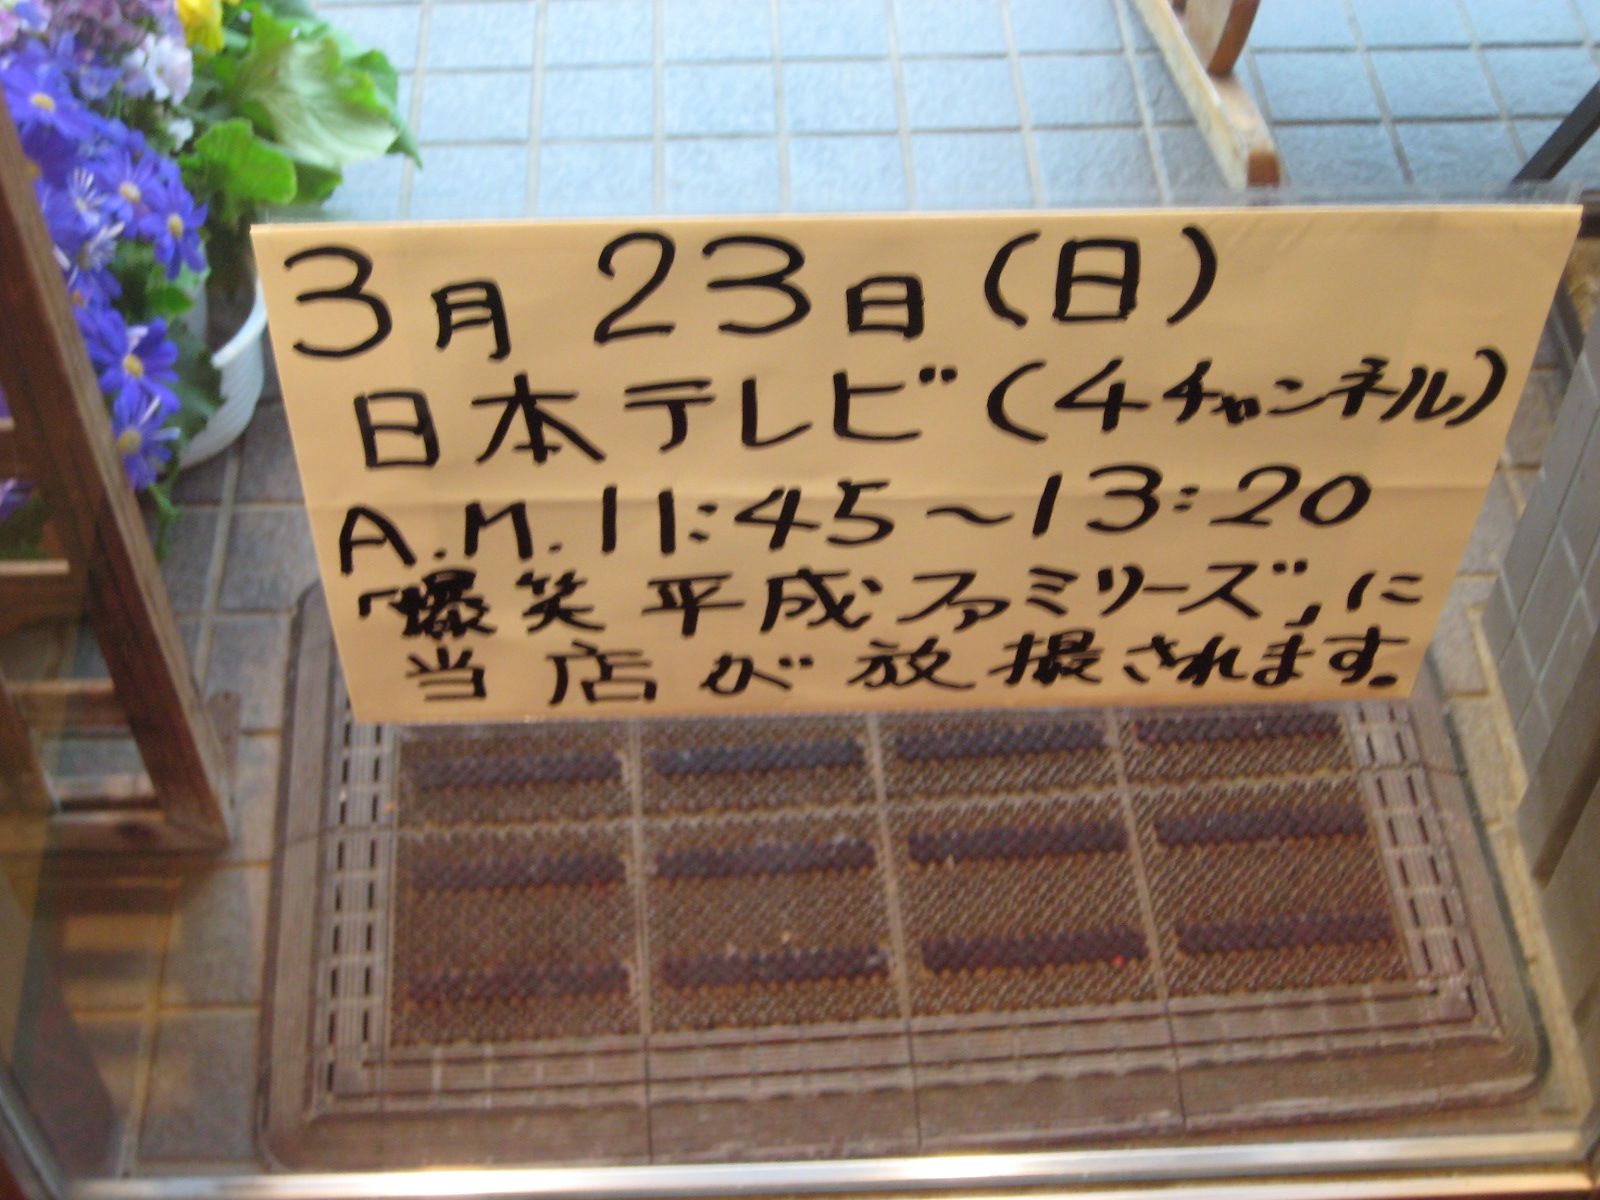 3月 23日(日)
日本テレビ(4チャンネル)
A.M.11:45～13:20
「爆笑 平成ファミリーズ」に
当店が放撮されます。